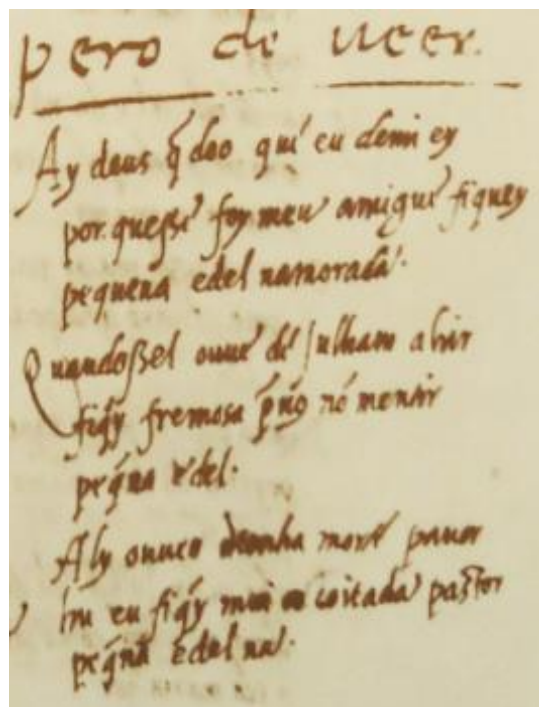 pero de ueer.
Ay deus q̄ doo qui eu demi ey
por quesse foy meu amigue fiquey
pequena edel namorada.
Quandossel ouue de Julham a hir
fiq̄y fremosa pr̄ uō nō mentir
peq̄na edel.
Aly ouueu mort pauor
hu eu fiq̄y mui coitada pastor
peq̄na edel na.